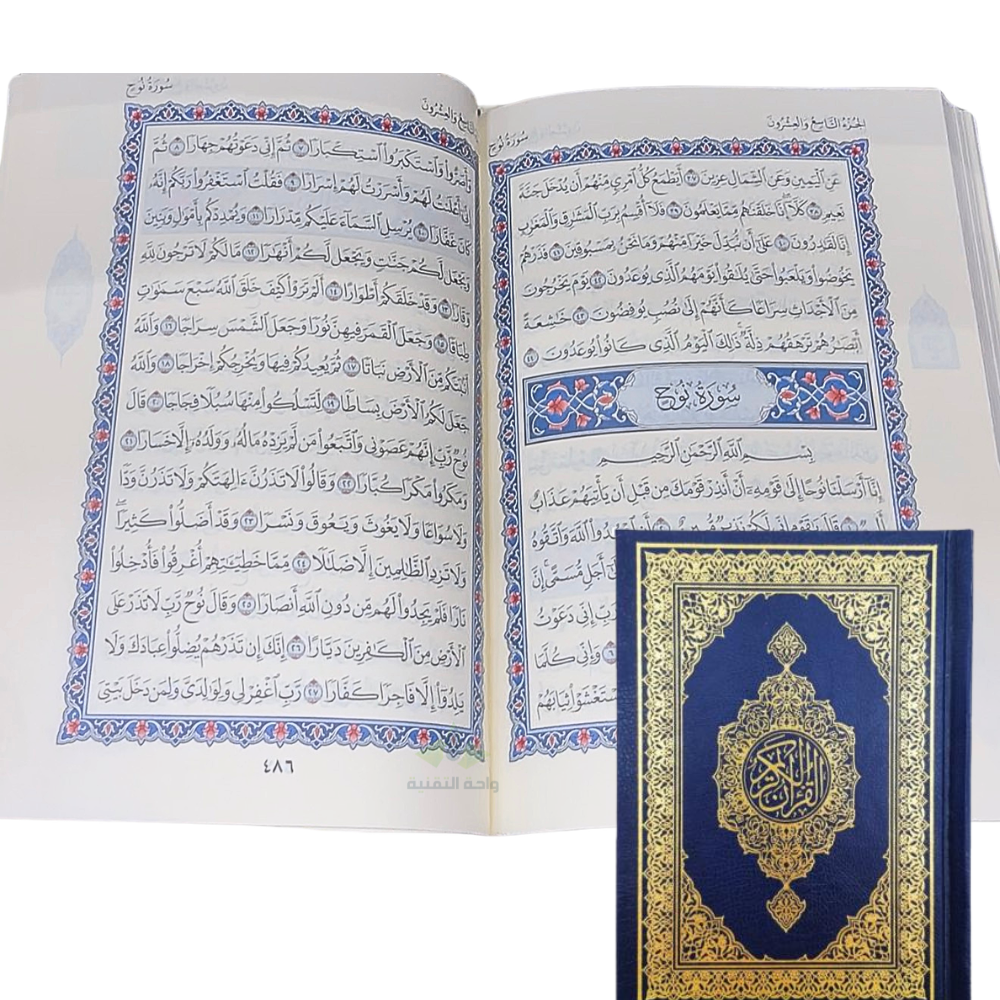 الجُزءُ التَّاسِعُ وَالعِشْرُونَ
سُورَةُ نُوحٍ
عَنِ ٱلْيَمِينِ وَعَنِ ٱلشِّمَالِ عِزِينَ ٣٧ أَيَطْمَعُ كُلُّ ٱمْرِئٍ مِّنْهُمْ أَن يُدْخَلَ جَنَّةَ
نَعِيمٍ ٣٨ كَلَّآ إِنَّا خَلَقْنَٰهُم مِّمَّا يَعْلَمُونَ ٣٩ فَلَآ أُقْسِمُ بِرَبِّ ٱلْمَشَٰرِقِ وَٱلْمَغَٰرِبِ
إِنَّا لَقَٰدِرُونَ ٤٠ عَلَىٰٓ أَن نُّبَدِّلَ خَيْرًا مِّنْهُمْ وَمَا نَحْنُ بِمَسْبُوقِينَ ٤١ فَذَرْهُمْ
يَخُوضُوا۟ وَيَلْعَبُوا۟ حَتَّىٰ يُلَٰقُوا۟ يَوْمَهُمُ ٱلَّذِى يُوعَدُونَ ٤٢ يَوْمَ يَخْرُجُونَ
مِنَ ٱلْأَجْدَاثِ سِرَاعًا كَأَنَّهُمْ إِلَىٰ نُصُبٍ يُوفِضُونَ ٤٣ خَٰشِعَةً
أَبْصَٰرُهُمْ تَرْهَقُهُمْ ذِلَّةٌ ذَٰلِكَ ٱلْيَوْمُ ٱلَّذِى كَانُوا۟ يُوعَدُونَ ٤٤
سُورَةُ نُوحٍ
بِسْمِ ٱللَّهِ ٱلرَّحْمَٰنِ ٱلرَّحِيمِ
إِنَّآ أَرْسَلْنَا نُوحًا إِلَىٰ قَوْمِهِۦٓ أَنْ أَنذِرْ قَوْمَكَ مِن قَبْلِ أَن يَأْتِيَهُمْ عَذَابٌ
قَالَ يَٰقَوْمِ إِنِّى لَكُمْ نَذِيرٌ ٱعْبُدُوا۟ ٱللَّهَ وَٱتَّقُوهُ
أَجَلٍ مُّسَمًّى إِنَّ
إِنِّى دَعَوْتُ
٦ وَإِنِّى كُلَّمَا
وَٱسْتَغْشَوْا۟ ثِيَابَهُمْ
التَّاسِعُ وَالعِشْرُونَ
سُورَةُ نُوحٍ
وَأَصَرُّوا۟ وَٱسْتَكْبَرُوا۟ ٱسْتِكْبَارًا ٧ ثُمَّ إِنِّى دَعَوْتُهُمْ جِهَارًا ٨ ثُمَّ
إِنِّىٓ أَعْلَنتُ لَهُمْ وَأَسْرَرْتُ لَهُمْ إِسْرَارًا ٩ فَقُلْتُ ٱسْتَغْفِرُوا۟ رَبَّكُمْ إِنَّهُۥ
كَانَ غَفَّارًا ١٠ يُرْسِلِ ٱلسَّمَآءَ عَلَيْكُم مِّدْرَارًا ١١ وَيُمْدِدْكُم بِأَمْوَٰلٍ وَبَنِينَ
وَيَجْعَل لَّكُمْ جَنَّٰتٍ وَيَجْعَل لَّكُمْ أَنْهَٰرًا ١٢ مَّا لَكُمْ لَا تَرْجُونَ لِلَّهِ
وَقَارًا ١٣ وَقَدْ خَلَقَكُمْ أَطْوَارًا ١٤ أَلَمْ تَرَوْا۟ كَيْفَ خَلَقَ ٱللَّهُ سَبْعَ سَمَٰوَٰتٍ
طِبَاقًا ١٥ وَجَعَلَ ٱلْقَمَرَ فِيهِنَّ نُورًا وَجَعَلَ ٱلشَّمْسَ سِرَاجًا ١٦ وَٱللَّهُ
أَنۢبَتَكُم مِّنَ ٱلْأَرْضِ نَبَاتًا ١٧ ثُمَّ يُعِيدُكُمْ فِيهَا وَيُخْرِجُكُمْ إِخْرَاجًا ١٨ وَٱللَّهُ
جَعَلَ لَكُمُ ٱلْأَرْضَ بِسَاطًا ١٩ لِّتَسْلُكُوا۟ مِنْهَا سُبُلًا فِجَاجًا ٢٠ قَالَ
نُوحٌ رَّبِّ إِنَّهُمْ عَصَوْنِى وَٱتَّبَعُوا۟ مَن لَّمْ يَزِدْهُ مَالُهُۥ وَوَلَدُهُۥٓ إِلَّا خَسَارًا ٢١
وَمَكَرُوا۟ مَكْرًا كُبَّارًا ٢٢ وَقَالُوا۟ لَا تَذَرُنَّ ءَالِهَتَكُمْ وَلَا تَذَرُنَّ وَدًّا
وَلَا سُوَاعًا وَلَا يَغُوثَ وَيَعُوقَ وَنَسْرًا ٢٣ وَقَدْ أَضَلُّوا۟ كَثِيرًا ۖ
وَلَا تَزِدِ ٱلظَّٰلِمِينَ إِلَّا ضَلَٰلًا ٢٤ مِّمَّا خَطِيٓـَٰٔتِهِمْ أُغْرِقُوا۟ فَأُدْخِلُوا۟
نَارًا فَلَمْ يَجِدُوا۟ لَهُم مِّن دُونِ ٱللَّهِ أَنصَارًا ٢٥ وَقَالَ نُوحٌ رَّبِّ لَا تَذَرْ عَلَى
ٱلْأَرْضِ مِنَ ٱلْكَٰفِرِينَ دَيَّارًا ٢٦ إِنَّكَ إِن تَذَرْهُمْ يُضِلُّوا۟ عِبَادَكَ وَلَا
يَلِدُوٓا۟ إِلَّا فَاجِرًا كَفَّارًا ٢٧ رَّبِّ ٱغْفِرْ لِى وَلِوَٰلِدَىَّ وَلِمَن دَخَلَ بَيْتِىَ
٤٨٦
واحة التقنية
القرآن الكريم